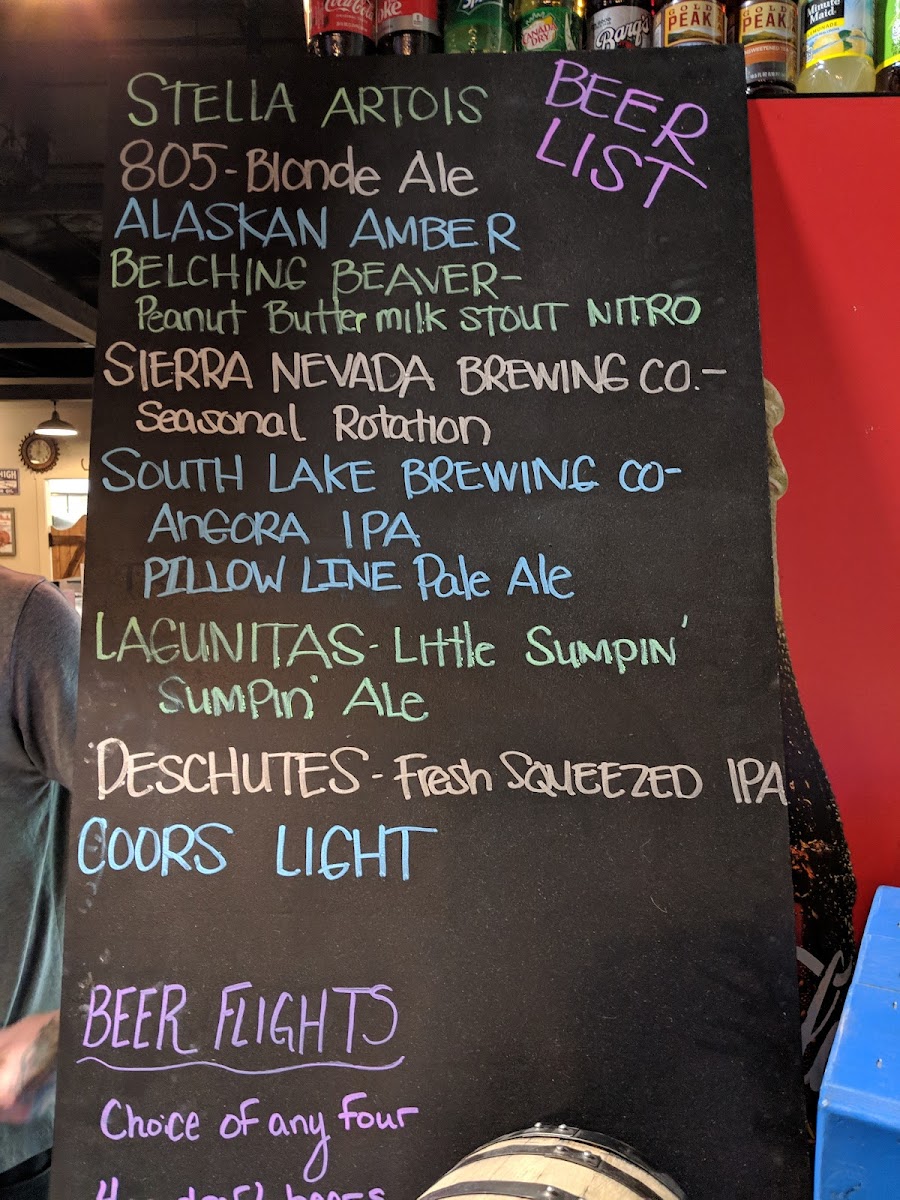 Coca-Cola
Coke
CANADA
DRY
Barq's
GOLD
PEAK
GOLD
PEAK
Minute
Maid
LEMONADE
BEER
LIST
STELLA ARTOIS
805-Blonde Ale
ALASKAN AMBER
BELCHING BEAVER-
Peanut Butter milk STOUT NITRO
SIERRA NEVADA BREWING CO.-
Seasonal Rotation
SOUTH LAKE BREWING CO-
ANGORA IPA
PILLOW LINE Pale Ale
LAGUNITAS-Little SUMPIN'
SUMPIN' ALe
DESCHUTES-Fresh SQUEEZED IPA
COORS LIGHT
BEER FLIGHTS
Choice of any four